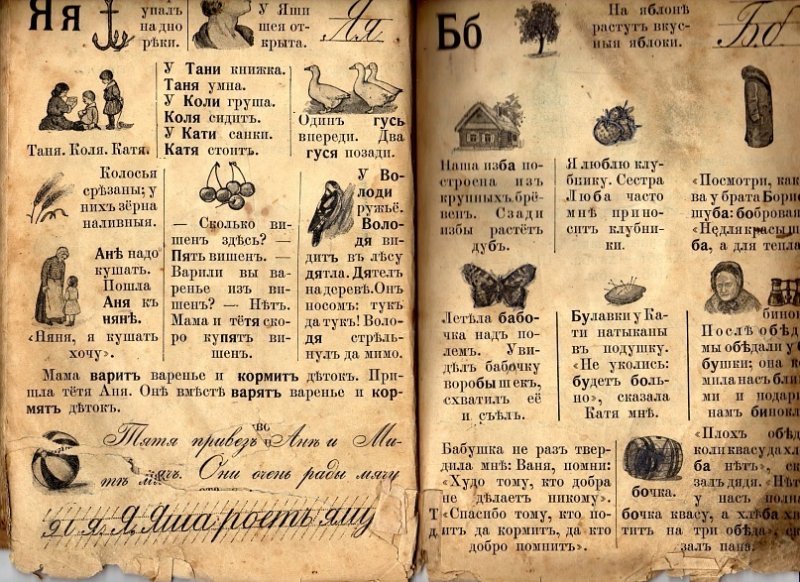 Я я
упалъ
на дно
рѣки.
У Яши
шея от-
крыта.
Яя
Таня. Коля. Катя.
У Тани книжка.
Таня умна.
У Коли груша.
Коля сидитъ.
У Кати санки.
Катя стоитъ.
Одинъ гусь
впереди. Два
гуся позади.
Колосья
срѣзаны; у
нихъ зёрна
наливныя.
Анѣ надо
кушать.
Пошла
Аня къ
нянѣ.
«Няня, я кушать
хочу».
— Сколько ви-
шенъ здѣсь? —
Пять вишенъ. —
Варили вы ва-
ренье изъ ви-
шенъ? — Нѣтъ.
Мама и тётя ско-
ро купятъ ви-
шенъ.
У Во-
лоди
ружьё.
Воло-
дя ви-
дитъ въ лѣсу
дятла. Дятел
на деревѣ. Онъ
носомъ: тукъ
да тукъ! Воло-
дя стрѣль-
нулъ да мимо.
Мама варитъ варенье и кормитъ дѣтокъ. При-
шла тётя Аня. Онѣ вмѣстѣ варятъ варенье и кор-
мятъ дѣтокъ.
Тятя привезъ Анѣ и Ми-
тѣ мячъ. Они очень рады мячу
я я. Я. Яша ростъ яму
Бб
На яблонѣ
растутъ вкус-
ныя яблоки.
Бб
Наша изба по-
строена изъ
крупныхъ брё-
венъ. Сзади
избы растётъ
дубъ.
Я люблю клу-
бнику. Сестра
Люба часто
мнѣ прино-
ситъ клубни-
ки.
«Посмотри, как
ва у брата Борис
шуба: бобровая
«Не для красы ш
ба, а для тепла
Летѣла бабо-
чка надъ по-
лемъ. Уви-
дѣлъ бабочку
воробышекъ,
схватилъ её
и съѣлъ.
Булавки у Ка-
ти натыканы
въ подушку.
«Не уколись:
будетъ боль-
но», сказала
Катя мнѣ.
бино
Послѣ обѣд
мы обѣдали у б
бушки; она ко
мила насъ бли
ми и подари
намъ бинокл
Бабушка не разъ твер-
дила мнѣ: Ваня, помни:
«Худо тому, кто добра
не дѣлаетъ никому».
«Спасибо тому, кто по-
итъ да кормитъ, да кто
добро помнитъ».
бочка.
«Плохъ обѣд
коли квасу да хл
ба нѣтъ», ск
залъ дядя. «Нѣт
у насъ полна
бочка квасу, а хлѣба хв
титъ на три обѣда», ск
залъ папа.